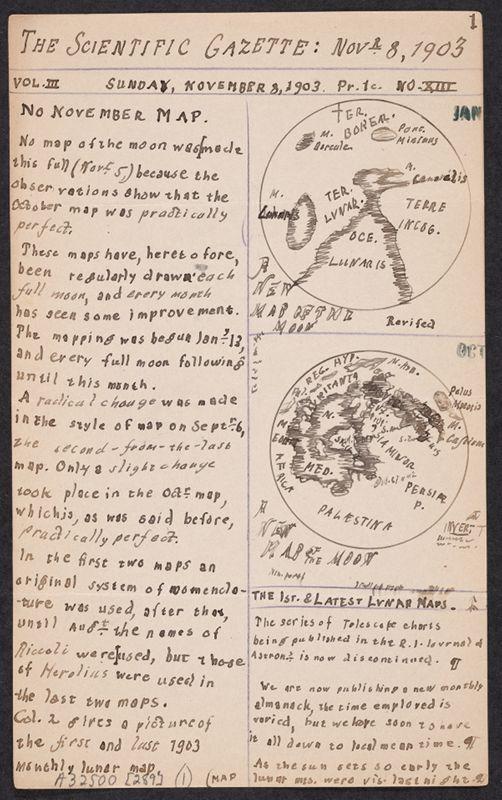 1
THE SCIENTIFIC GAZETTE: NOVR 8, 1903
VOL. III SUNDAY, NOVEMBER 8, 1903. Pr. 1c. NO XIII
NO NOVEMBER MAP.
No map of the moon was made
this full (Nov. 5) because the
observations show that the
October map was practically
perfect.
These maps have, heretofore,
been regularly drawn each
full moon, and every month
has seen some improvement.
The mapping was begun Jany 13,
and every full moon following
until this month.
A radical change was made
in the style of map on Septr. 6,
the second-from-the-last
map. Only a slight change
took place in the Oct. map,
which is, as was said before,
practically perfect.
In the first two maps an
original system of nomencla-
ture was used, after that,
until Augt the names of
Riccoli were used, but those
of Herolius were used in
the last two maps.
Col. 2 gives a picture of
the first and last 1903
monthly lunar map.
A32500 [289] (1) (MAP
JAN
TER.
BOREAL.
M.
Hercule.
Pons.
Minimus
M.
TER.
LVNAR.
TERRE
INCOG.
OCE.
LUNARIS
A
NEW
MAP OF THE
MOON
Revised
OCT
REG. HYP.
M.
Palus
Maeotis
M.
N.
MED.
AFRICA
MINOR
PERSIAE
P.
PALESTINA
A
NEW
MAP OF THE MOON
INVERT
THE 1ST. & LATEST LVNAR MAPS.
The series of Telescope charts
being published in the R.I. Iournal of
Astron. is now discontinued. ¶
We are now publishing a new monthly
almanack, the time employed is
varied, but we hope soon to have
it all down to local mean time. ¶
As the sun sets so early the
lunar mts. were vis. last night. ¶